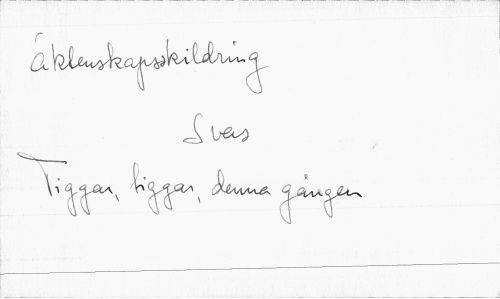 Äktenskapsskildring
5 vers
Tiggar, tiggar, denna gången